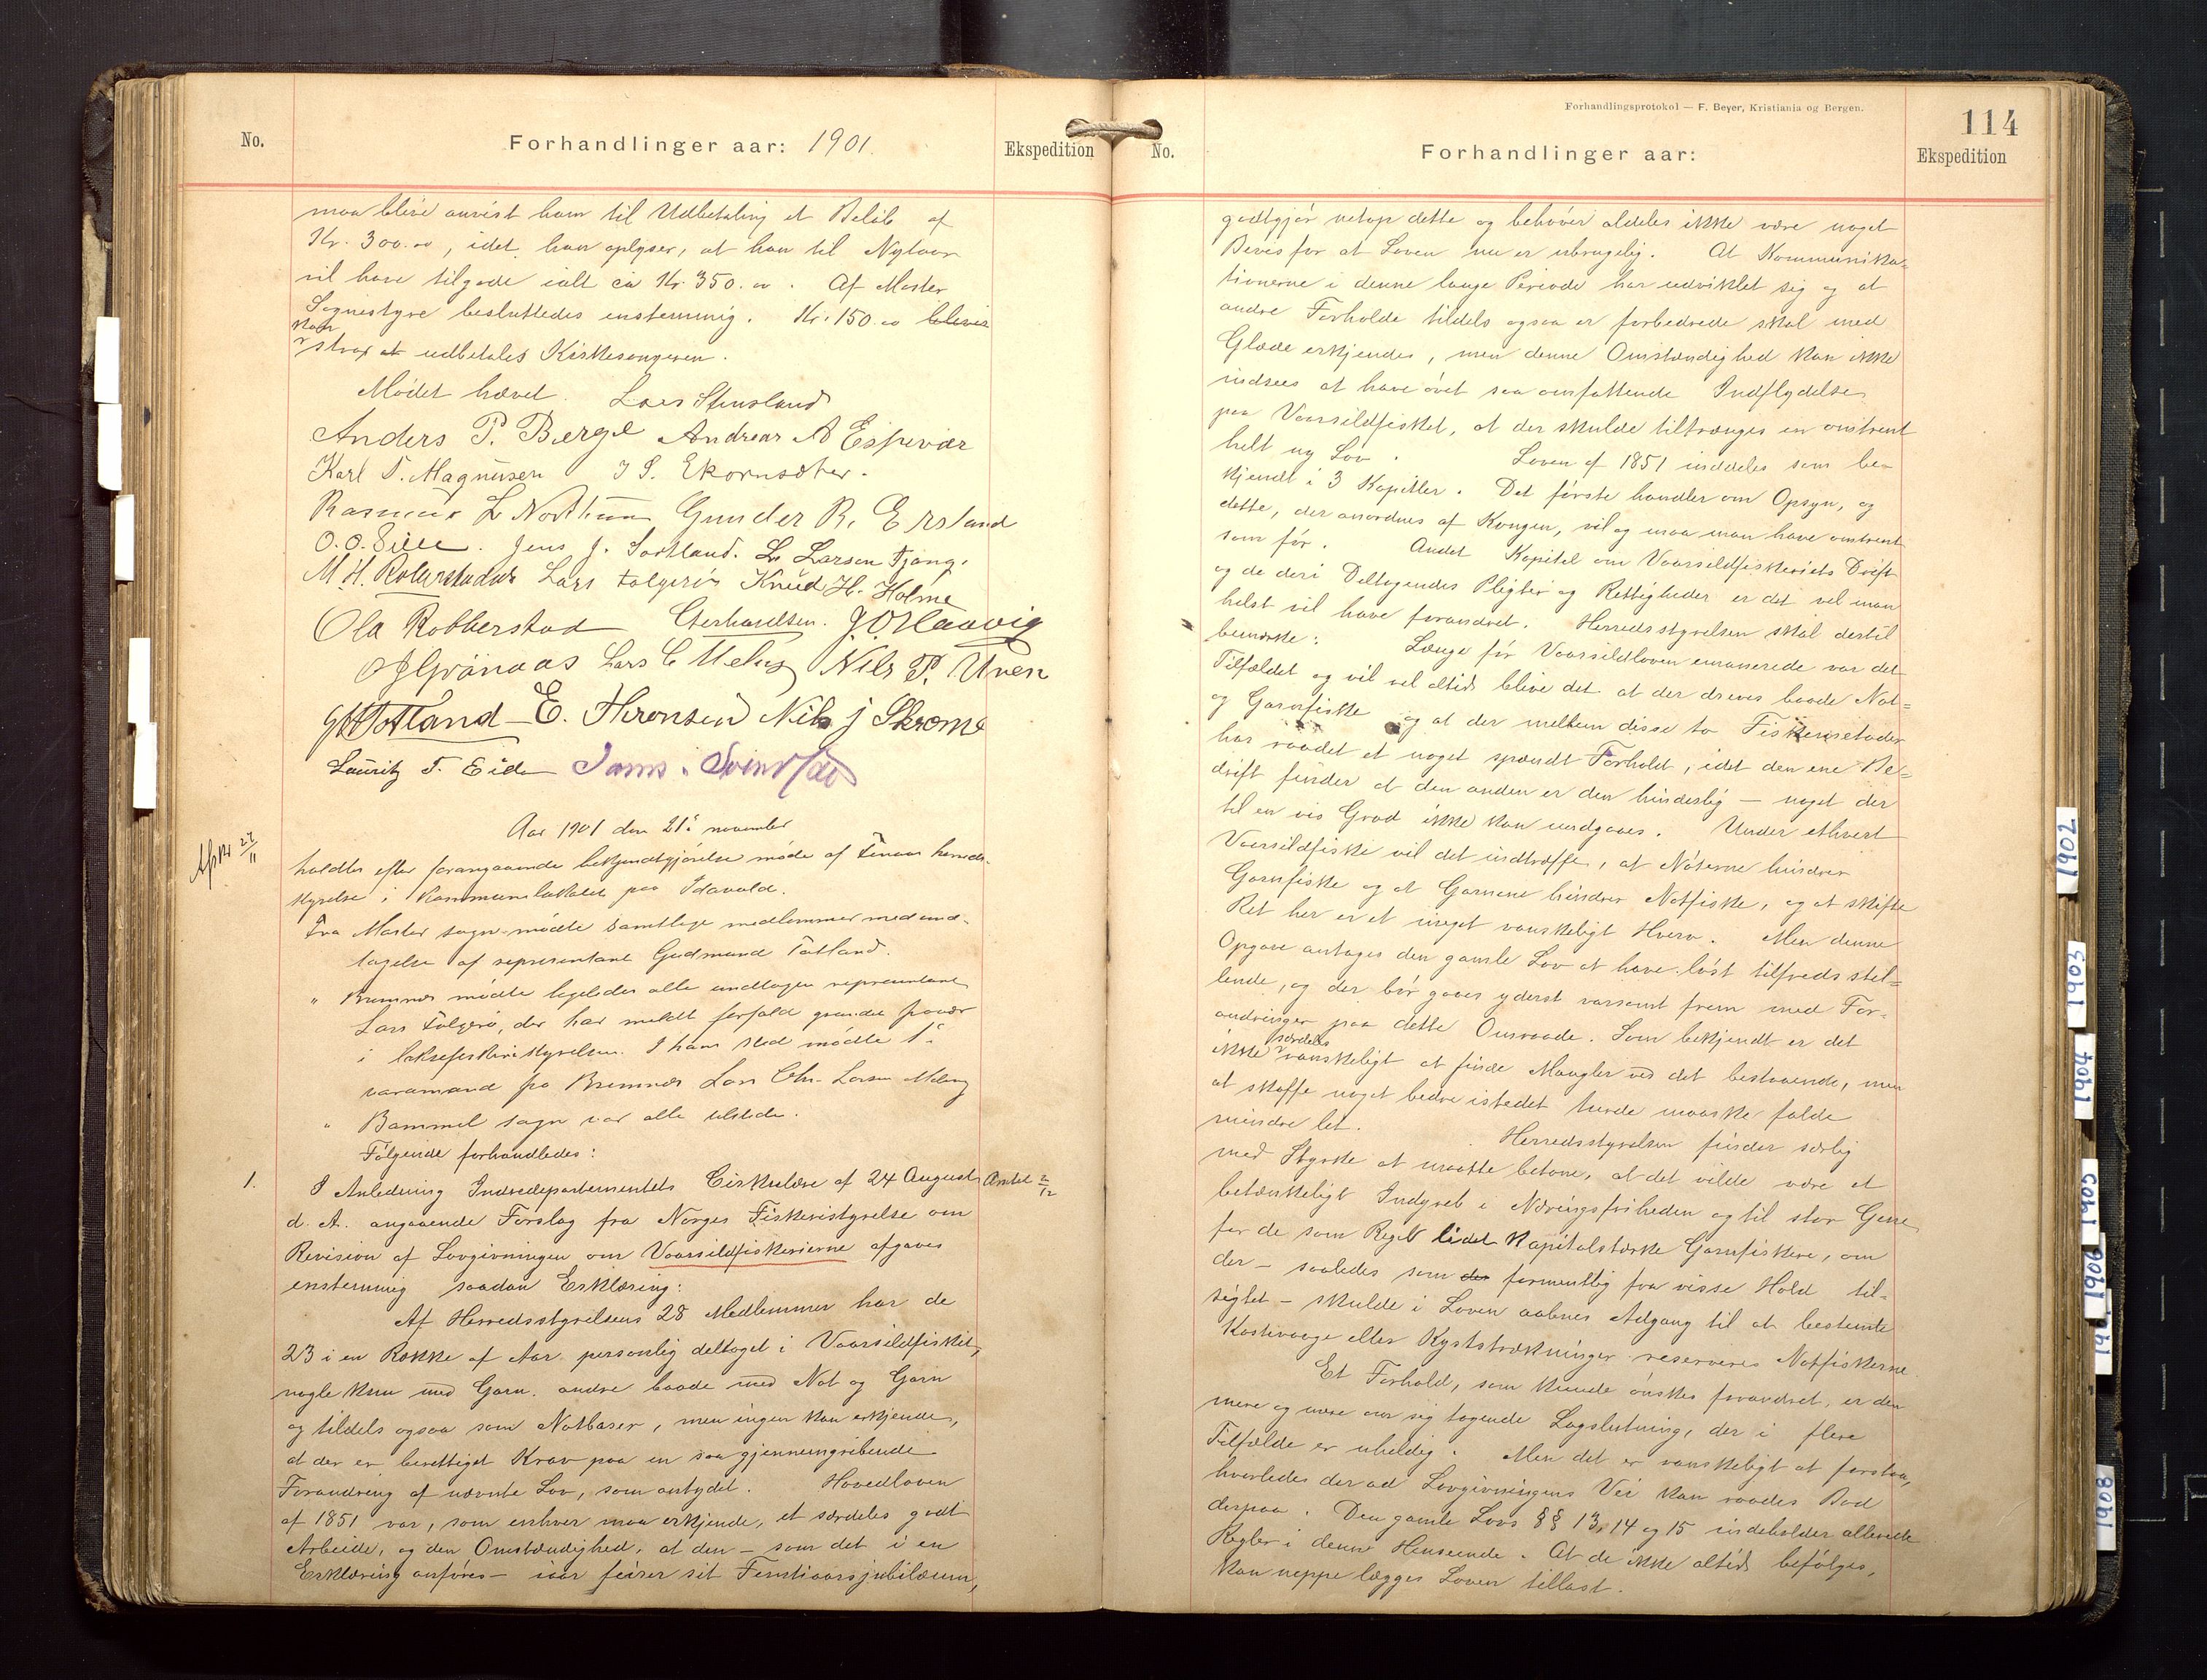 No.
Forhandlinger aar: 1901.
Ekspedition
maa blive anvist ham til Udbetaling et Beløb af
Kr. 300.00, idet han oplyser, at han til Nytaar
vil have tilgode ialt ca Kr. 350.00. Af Moster
Sognestyre besluttedes enstemmig. Kr. 150.00 bliver
kan
strax at udbetales Kirkesangeren.
Mødet hævet. Lars Stensland
Anders P. Bærge Andreas A Espevær
Karl T. Magnusen J S. Ekornsæter.
Rasmus L Nordtun Gunder R. Ersland
O. O. Jens J. Sortland. L. Larsen Tjong.
M. H. Lars Folgerø Knud H. Holme
Ola Robberstad Gerhardsen. J. O. Haavig
Grønaas Lars C Meling Nils P. Uren
Totland E. Nils j Skrome
Lauritz T. Eide
Aar 1901 den 21de november
Afskr 27/11
holdtes efter forangaaende bekjendtgjørelse møde af Finaas herreds-
styrelse i kommunelokalet paa Idavald.
Fra Moster sogn mødte samtlige medlemmer med und-
tagelse af representant Gudmund Totland.
" Bremnes mødte ligeledes alle undtagen representant
Lars Folgerø, der har meldt forfald grundet fravær
i laksefiskeristyrelsen. I hans sted mødte 1ste
varamand fra Bremnes Lars Chr. Larsen Meling
" Bømmel sogn var alle tilstede.
Følgende forhandledes:
1.
I Anledning Indredepartementets Cirkulære af 24 August
Amtet 2/12
d. A. angaaende Forslag fra Norges Fiskeristyrelse om
Revision af Lovgivningen om Vaarsildfiskerierne afgaves
enstemmig saadan Erklæring:
Af Herredsstyrelsens 28 Medlemmer har de
23 i en Række af Aar personlig deltaget i Vaarsildfisket,
nogle kun med Garn, andre baade med Not og Garn
og tildels ogsaa som Notbaser, men ingen kan erkjende,
at der er berettiget Krav paa en saa gjennemgribende
Forandring af nævnte Lov, som antydet. Hovedloven
af 1851 var, som enhver maa erkjende, et særdeles godt
Arbeide, og den Omstændighed, at den - som det i en
Erklæring anføres - iaar feirer sit Femtiaarsjubilæum,
Forhandlingsprotokol — F. Beyer, Kristiania og Bergen.
114
No.
Forhandlinger aar:
Ekspedition
godtgjør netop dette og behøver aldeles ikke være noget
Bevis for at Loven nu er ubrugelig. At Kommunika-
tionerne i denne lange Periode har udviklet sig og at
andre Forholde tildels ogsaa er forbedrede skal med
Glæde erkjendes, men denne Omstændighed kan ikke
indsees at have øvet saa omfattende Indflydelse
paa Vaarsildfisket, at der skulde tiltrænges en omtrent
helt ny Lov. Loven af 1851 inddeles som be-
kjendt i 3 Kapitler. Det første handler om Opsyn, og
dette, der anordnes af Kongen, vil og maa man have omtrent
som før. Andet Kapitel om Vaarsildfiskeriets Drift
og de deri Deltagendes Pligter og Rettigheder er det vel man
helst vil have forandret. Herredsstyrelsen skal dertil
bemærke: Længe før Vaarsildloven emanerede var det
Tilfældet og vil vel altid blive det at der dreves baade Not-
og Garnfiske og at der mellem disse to Fiskemetoder
har raadet et noget spændt Forhold, idet den ene Be-
drift finder at den anden er den hinderlig — noget der
til en vis Grad ikke kan undgaaes. Under ethvert
Vaarsildfiske vil det indtræffe, at Nøterne hindrer
Garnfiske og at Garnene hindrer Notfiske, og at skifte
Ret her er et meget vanskeligt Hverv. Men denne
Opgave antages den gamle Lov at have løst tilfredsstil-
lende, og der bør gaaes yderst varsomt frem med For-
andringer paa dette Omraade. Som bekjendt er det
særdeles
ikke vanskeligt at finde Mangler ved det bestaaende, men
at skaffe noget bedre istedet turde maaske falde
mindre let. Herredsstyrelsen finder særlig
med Styrke at maatte betone, at det vilde være et
betænkeligt Indgreb i Næringsfriheden og til stor Gene
for de som Regel lidet kapitalstærke Garnfiskere, om
der - saaledes som der formentlig fra visse Hold til-
sigtet - skulde i Loven aabnes Adgang til at bestemte
Kastevaage eller Kyststrækninger reserveres Notfiskerne.
Et Forhold, som kunde ønskes forandret, er den
mere og mere om sig tagende Lagslutning, der i flere
Tilfælde er uheldig. Men det er vanskeligt at forstaa,
hvorledes der ad Lovgivningens Vei kan raades Bod
derpaa. Den gamle Lovs §§ 13, 14 og 15 indeholder allerede
Regler i denne Henseende. At de ikke altid befølges,
kan neppe lægges Loven tillast.
1902
1903
1904
1905
1906
190
1908